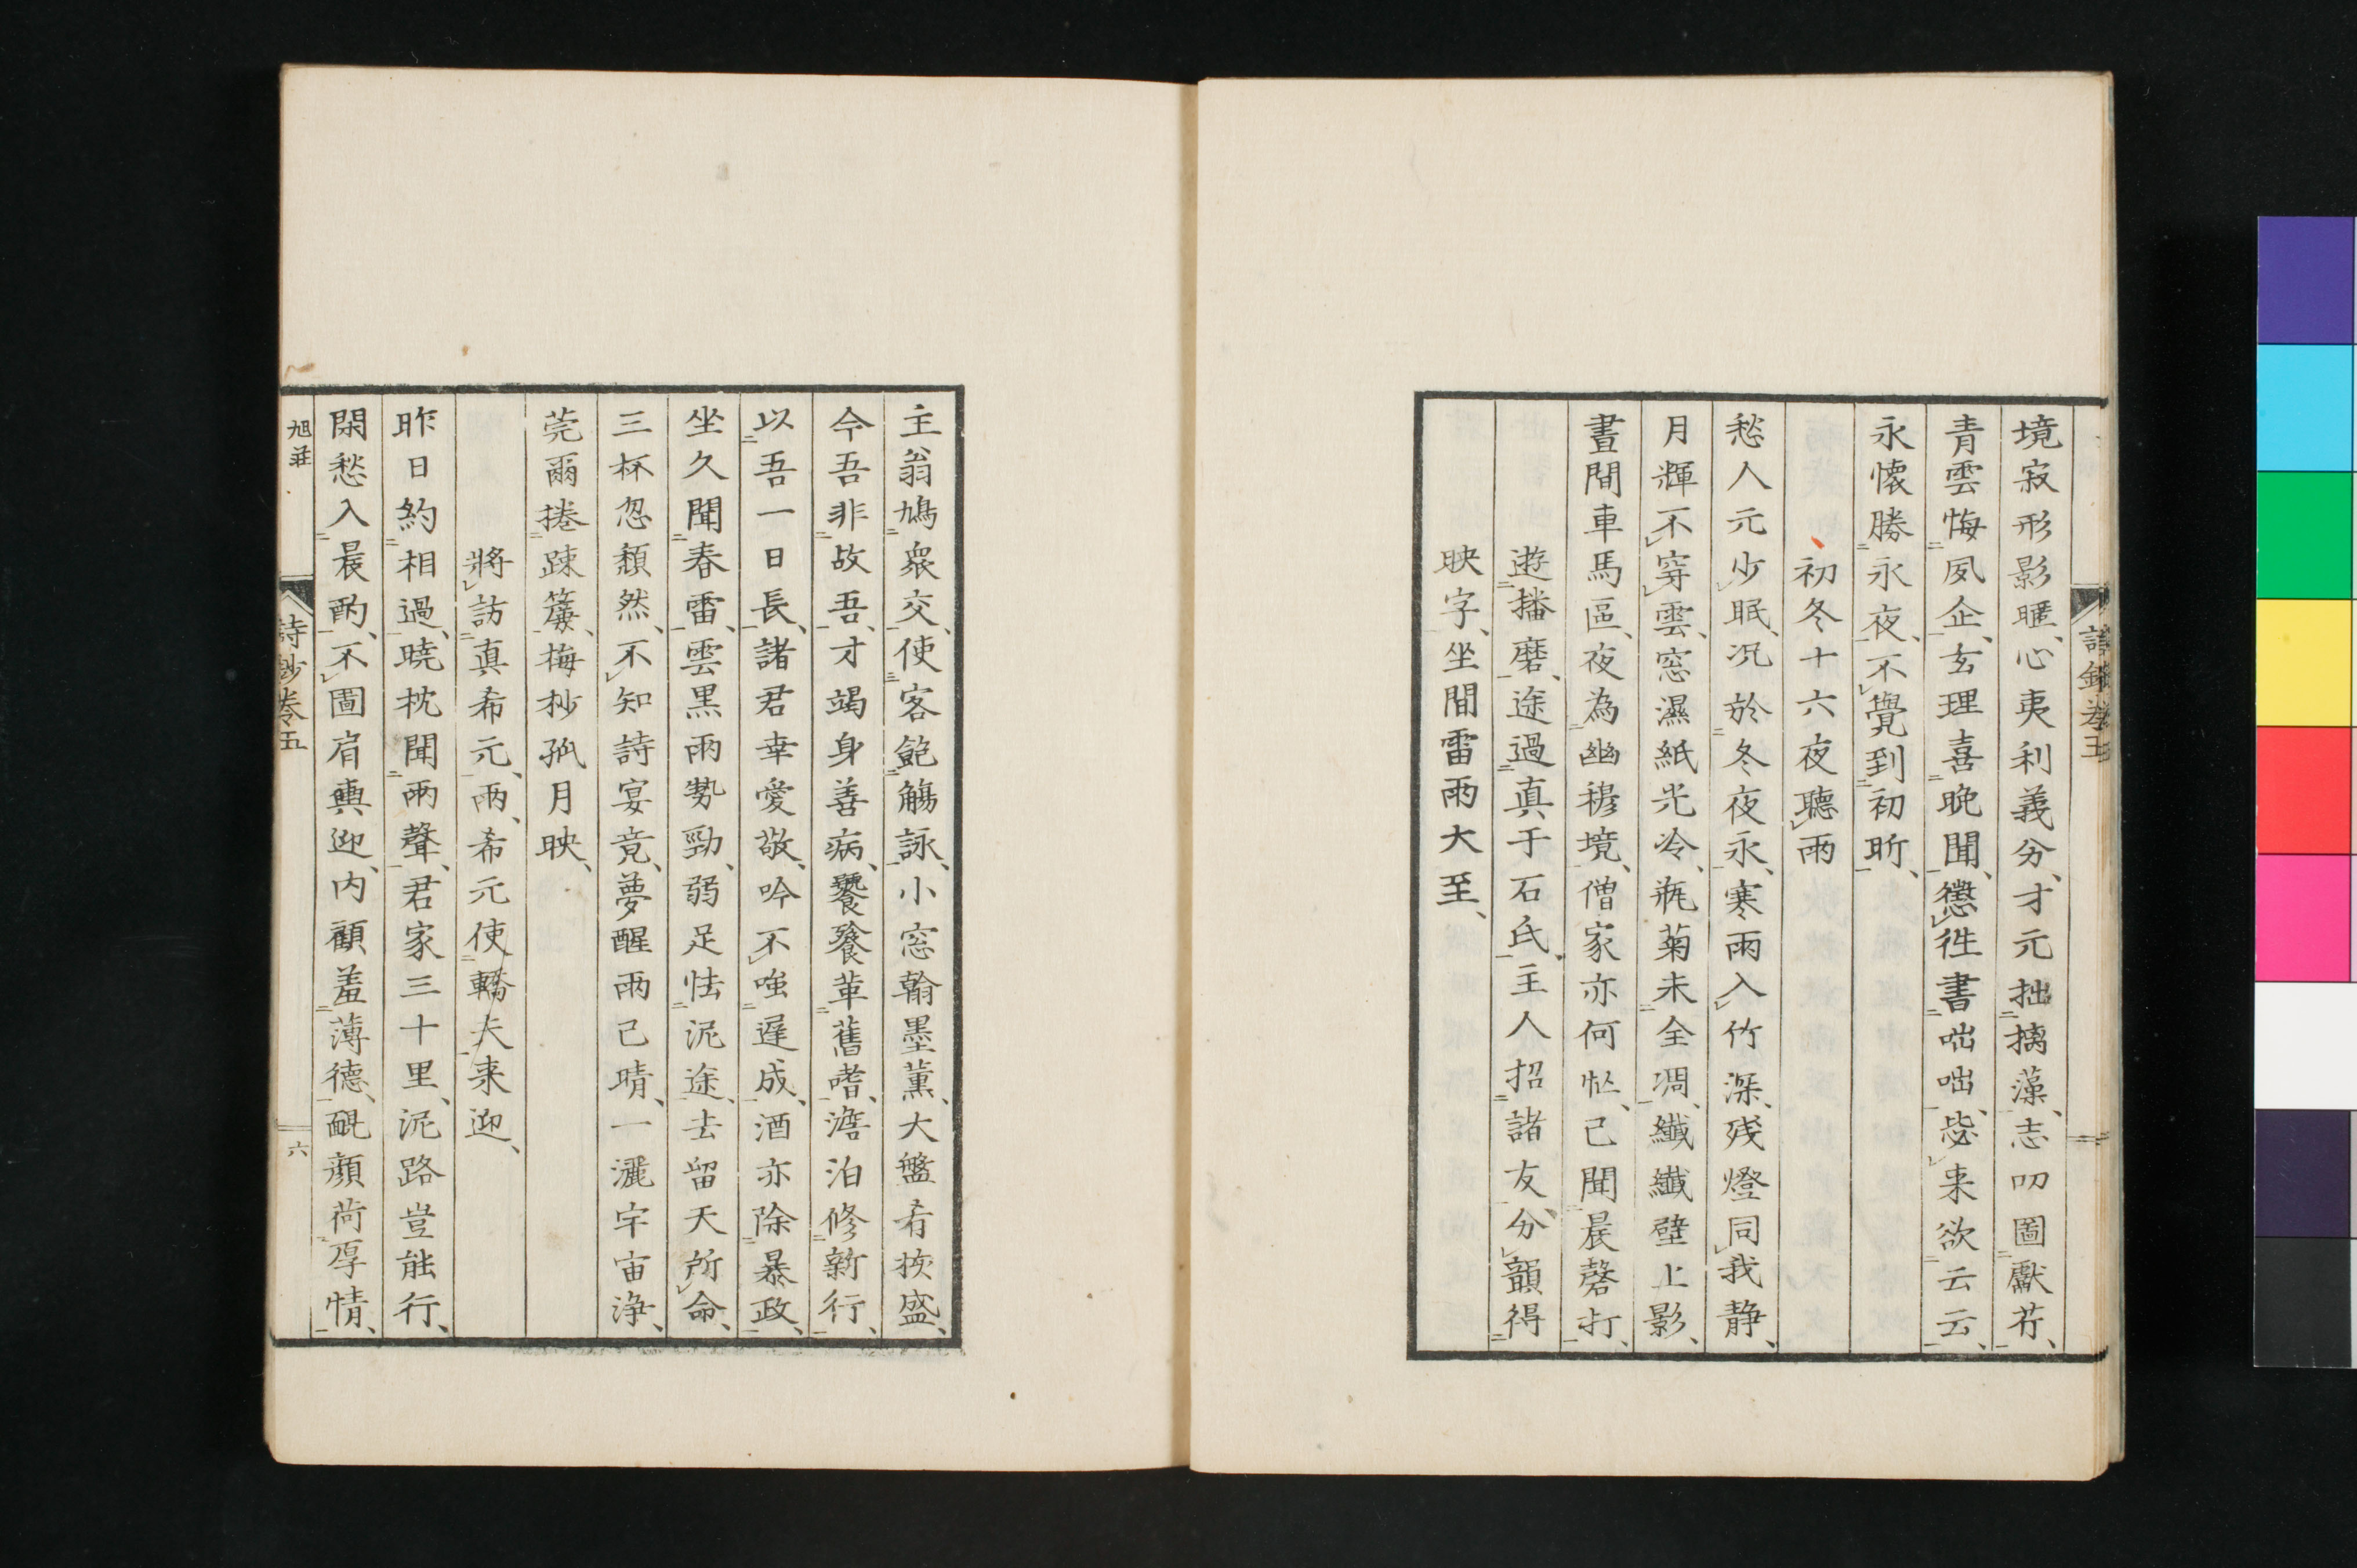 境寂形影暱、心夷利義分、才元拙摛藻、志叨圖獻芹、
青雲悔夙企、玄理喜晩聞、懲徃書咄咄、毖来欲云云、
永懷勝永夜、不覺到初昕、
初冬十六夜聽雨
愁人元少眠、況於冬夜永、寒雨入竹深、残燈同我静、
月輝不穿雲、窓濕紙光冷、瓶菊未全凋、纖纖壁上影、
晝間車馬區、夜為幽穆境、僧家亦何忙、已聞晨磬打、
遊播磨、途過真于石氏、主人招諸友、分韻得
映字、坐間雷雨大至、
主翁鳩衆交、使客飽觴詠、小窓翰墨薫、大盤肴核盛、
今吾非故吾、才竭身善病、饕餮革舊嗜、澹泊修新行、
以吾一日長、諸君幸愛敬、吟不強遅成、酒亦除暴政、
坐久聞春雷、雲黒雨勢勁、弱足怯泥途、去留天所命、
三杯忽頽然、不知詩宴竟、夢醒雨已晴、一灑宇宙浄、
莞爾捲疎簾、梅抄孤月映、
將訪真希元、雨、希元使轎夫来迎、
昨日約相過、曉枕聞雨聲、君家三十里、泥路豈能行、
閑愁入晨酌、不圖肩輿迎、内顧羞薄德、靦顔荷厚情、
旭莊
詩鈔卷五
六